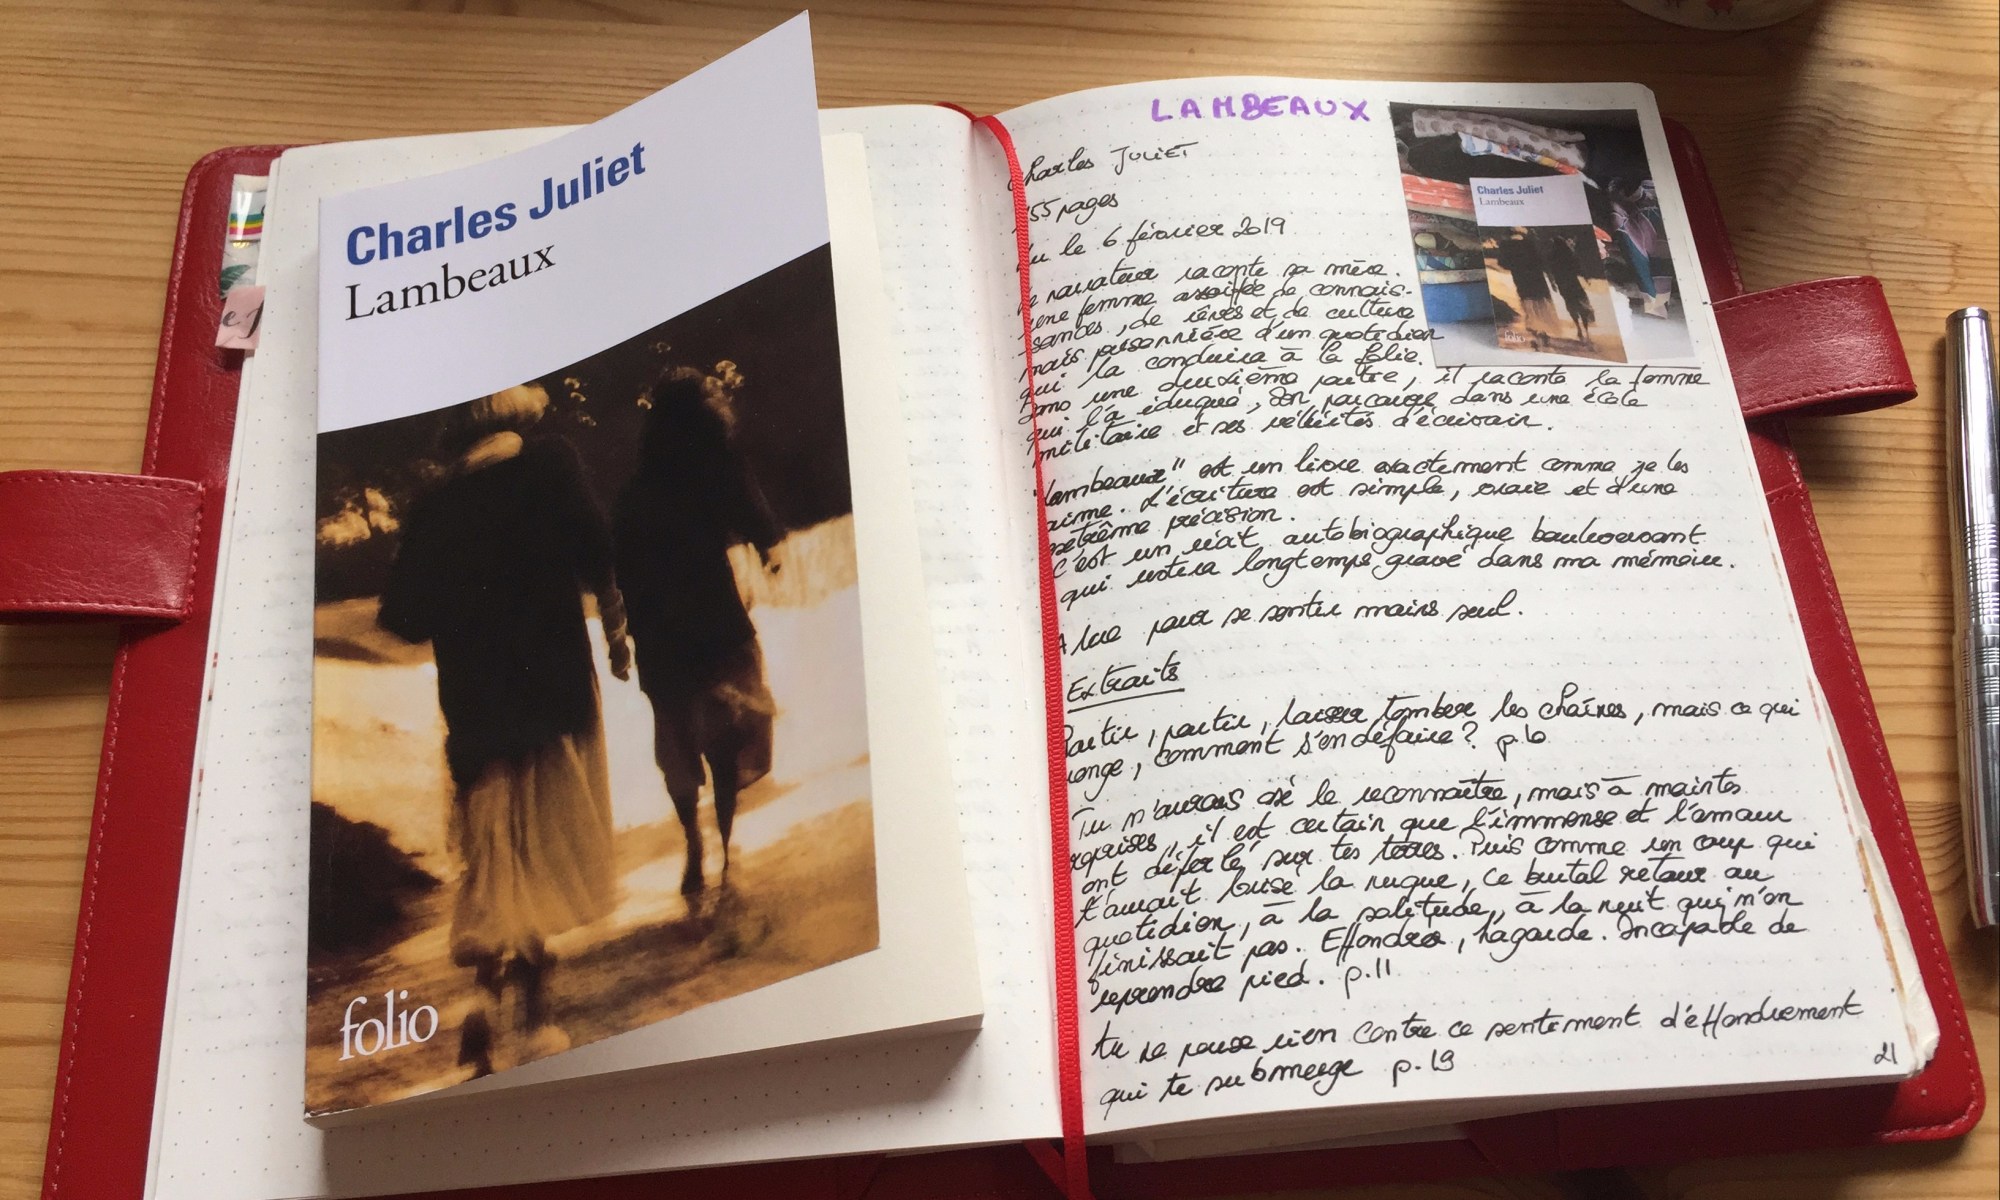 Charles Juliet
Lambeaux
folio
LAMBEAUX
Charles JULIET
155 pages
Lu le 6 février 2019
Le narrateur raconte sa mère.
une femme assoiffée de connais-
sances, de rêves et de culture
mais prisonnière d'un quotidien
qui la conduira à la folie.
Dans une deuxième partie, il raconte la femme
qui l'a éduqué, son parcours dans une école
militaire et ses velléités d'écrivain.
"Lambeaux" est un livre exactement comme je les
aime. L'écriture est simple, vraie et d'une
extrême précision.
C'est un récit autobiographique bouleversant
qui restera longtemps gravé dans ma mémoire.
A lire pour se sentir moins seul.
Extraits
Partir, partir, laisser tomber les chaînes, mais ce qui
ronge, comment s'en défaire? p.10
Tu n'aurais osé le reconnaître, mais à maintes
reprises, il est certain que l'immense et l'amour
ont déferlé sur tes terres. Puis comme un coup qui
t'aurait brisé la nuque, ce brutal retour au
quotidien, à la solitude, à la nuit qui n'en
finissait pas. Effondrée, hagarde. Incapable de
reprendre pied. p.11
Tu ne peux rien contre ce sentiment d'effondrement
qui te submerge p.19
21
Charles Juliet
Lambeaux
folio